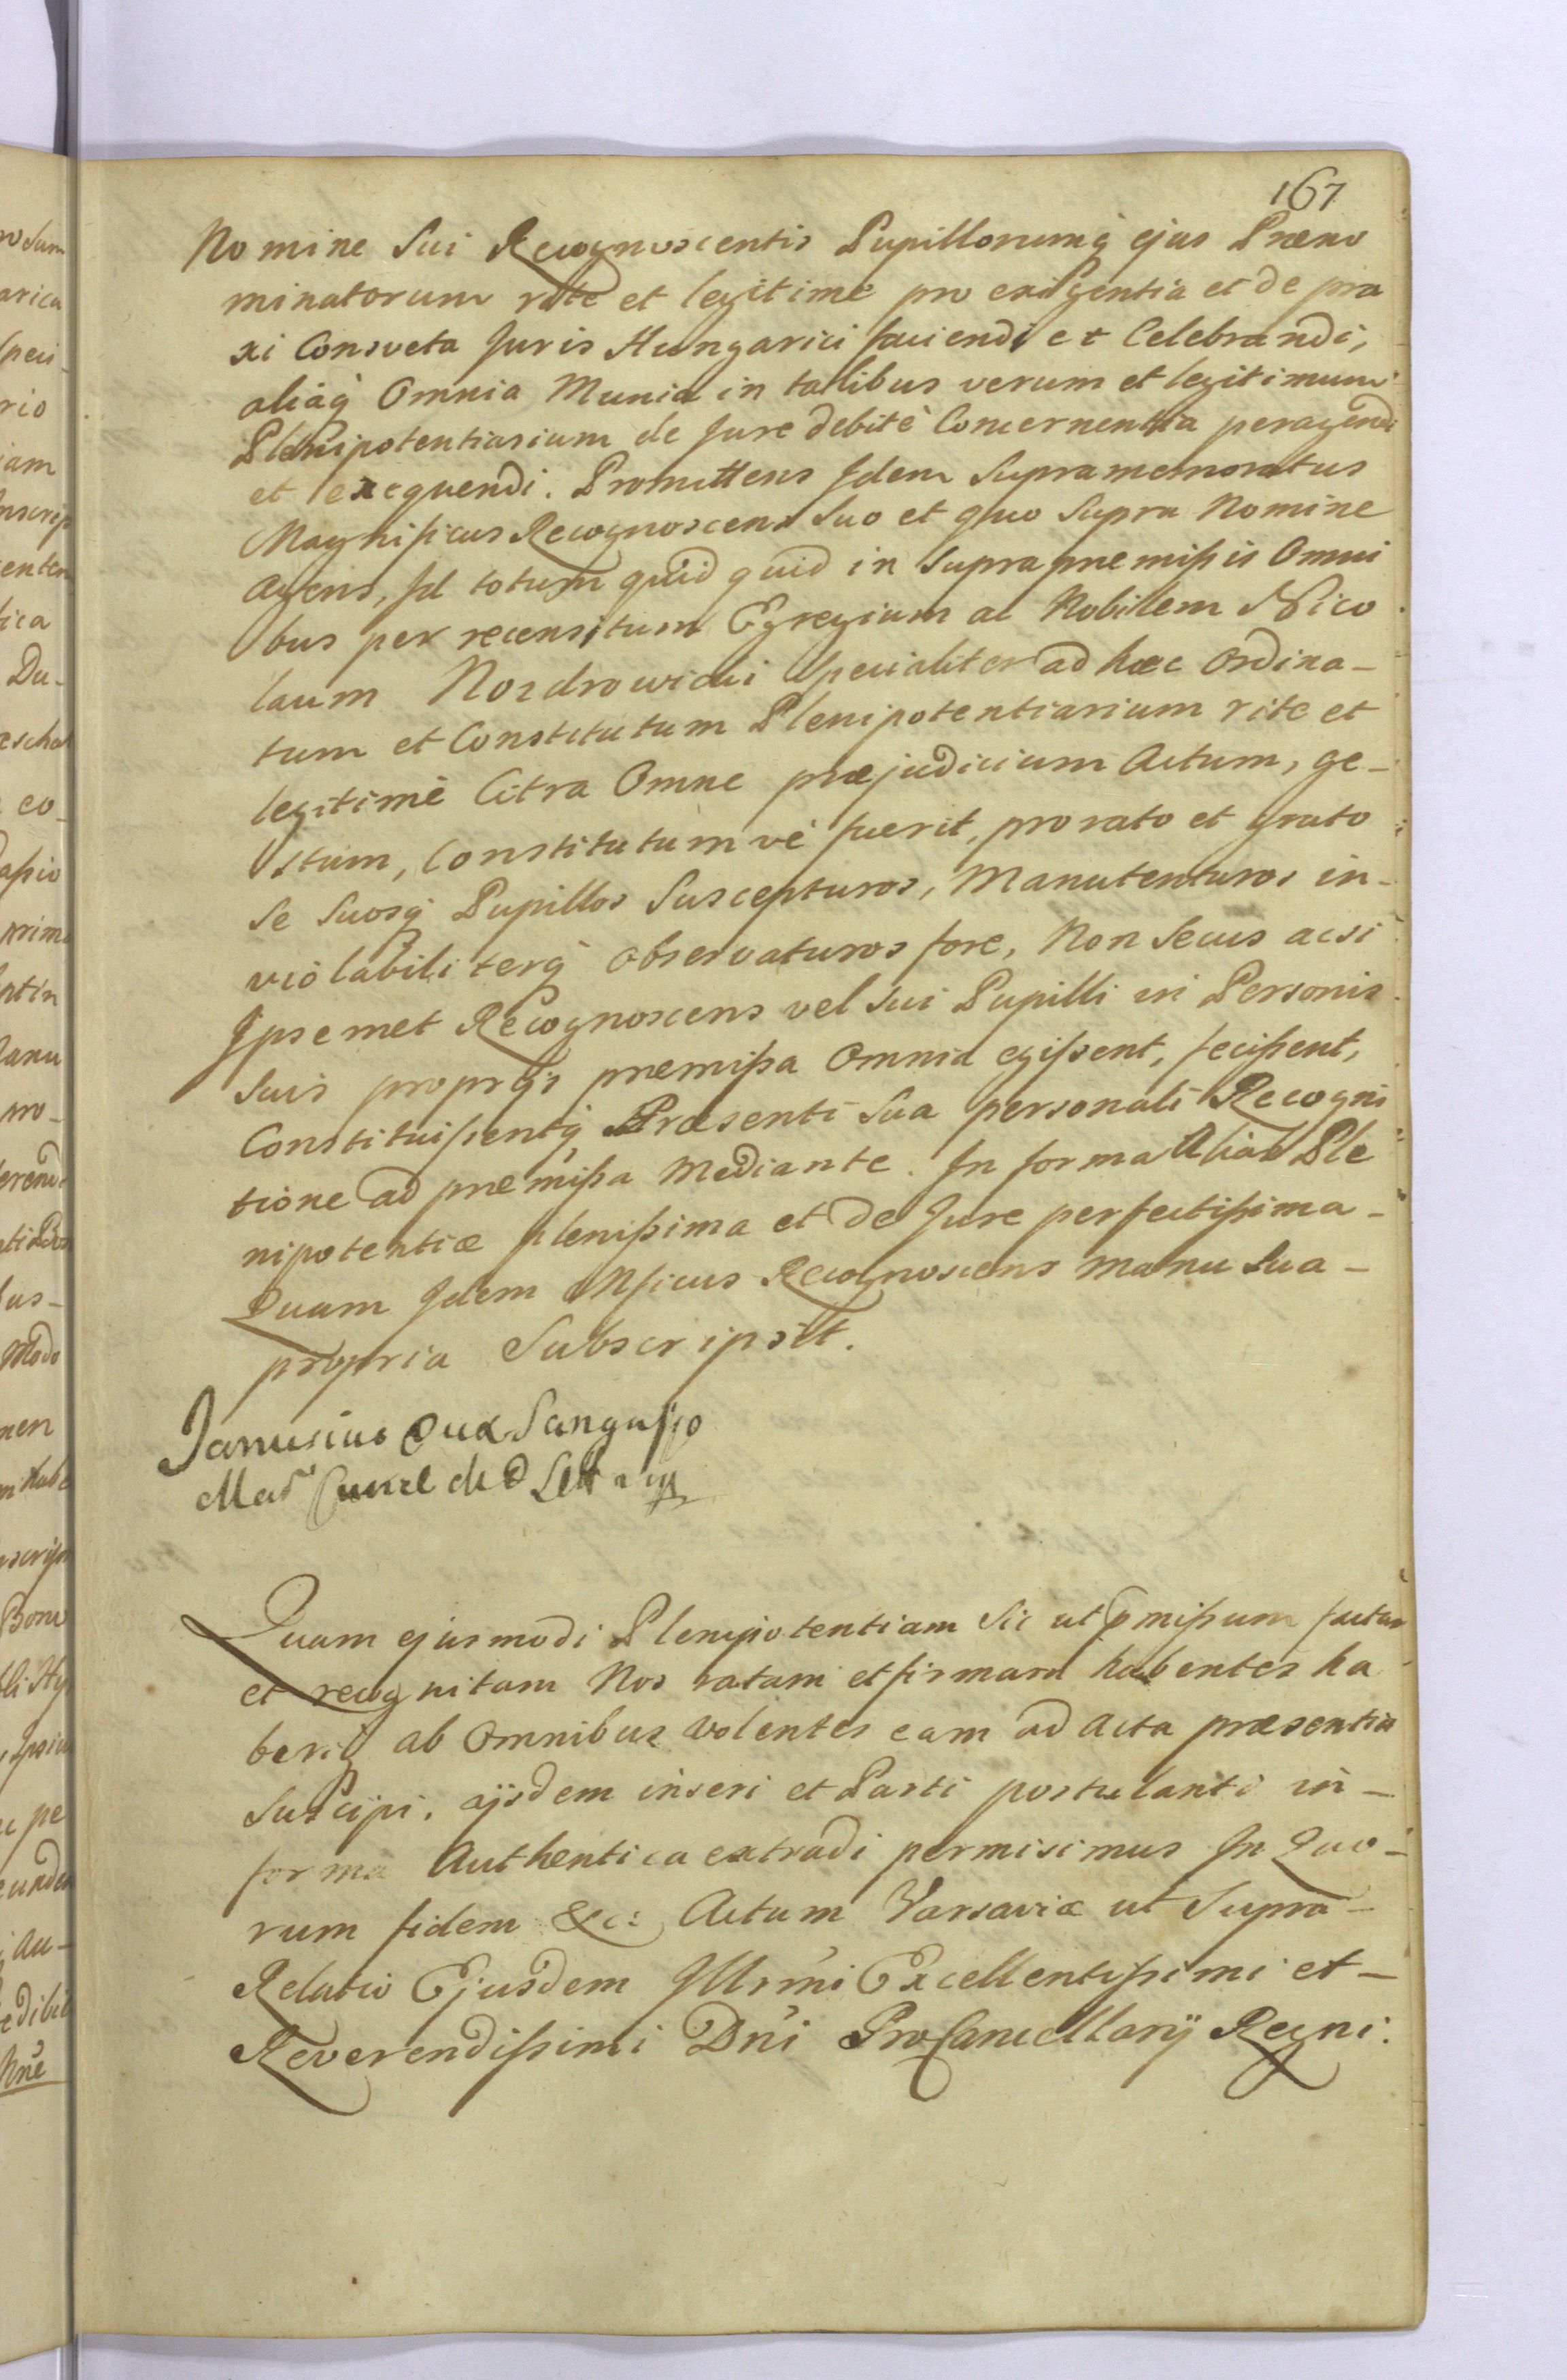 167
Nomine Sui Recognoscentis Pupillorumq̀ ejus Præno
minatorum rite et legitimè pro exigentia et de pra
xi Consveta Juris Hungarici faciendi et Celebrandi,
aliaq̀ Omnia Munia in talibus verum et legitimum
Plenipotentiarium de Jure debitè Concernentia peragendi
et exequendi. Promittens Idem Supramemoratus
Magnificus Recognoscens Suo et quo Supra Nomine
Agens, Id totum quid quid in Supra præmißis Omni
bus per recensitum Egregium ac Nobilem Nico
laum Nozdrowicki Specialiter ad hæc Ordina-
tum et Constitutum Plenipotentiarium rite et
legitimè Citra Omne præjudicium Actum, ge-
stum, Constitutum vè fuerit, pro rato et grato
Se Suosq̀ Pupillos Suscepturos, Manutenturos in-
violabiliterq̀ Observaturos fore, Non Secus acsi
Ipsemet Recognoscens vel Sui Pupilli in Personis
Suis proprijs præmißa Omnia egißent, fecißent,
Constituißentq̀ Præsenti Sua personali Recogni
tione ad præmißa Mediante. In forma Alias Ple
nipotentiæ plenißima et de Jure perfectißima-
Quam Idem Mficus Recognoscens manu Sua-
propria Subscripsit.
Janusius Dux Sangusko
Quam ejusmodi Plenipotentiam Sic ut pmißum factam
et recognitam Nos ratam et firmam habentes ha
beriq̀ ab Omnibus Volentes eam ad Acta præsentia
Suscipi, ijsdem inseri et Parti postulanti in-
forma Authentica extradi permisimus In Quo-
rum fidem &c: Actum Varsaviæ ut Supra-
Relatio Ejusdem Illrmi Excellentißimi et-
Reverendißimi Dni ProCancellarij Regni: